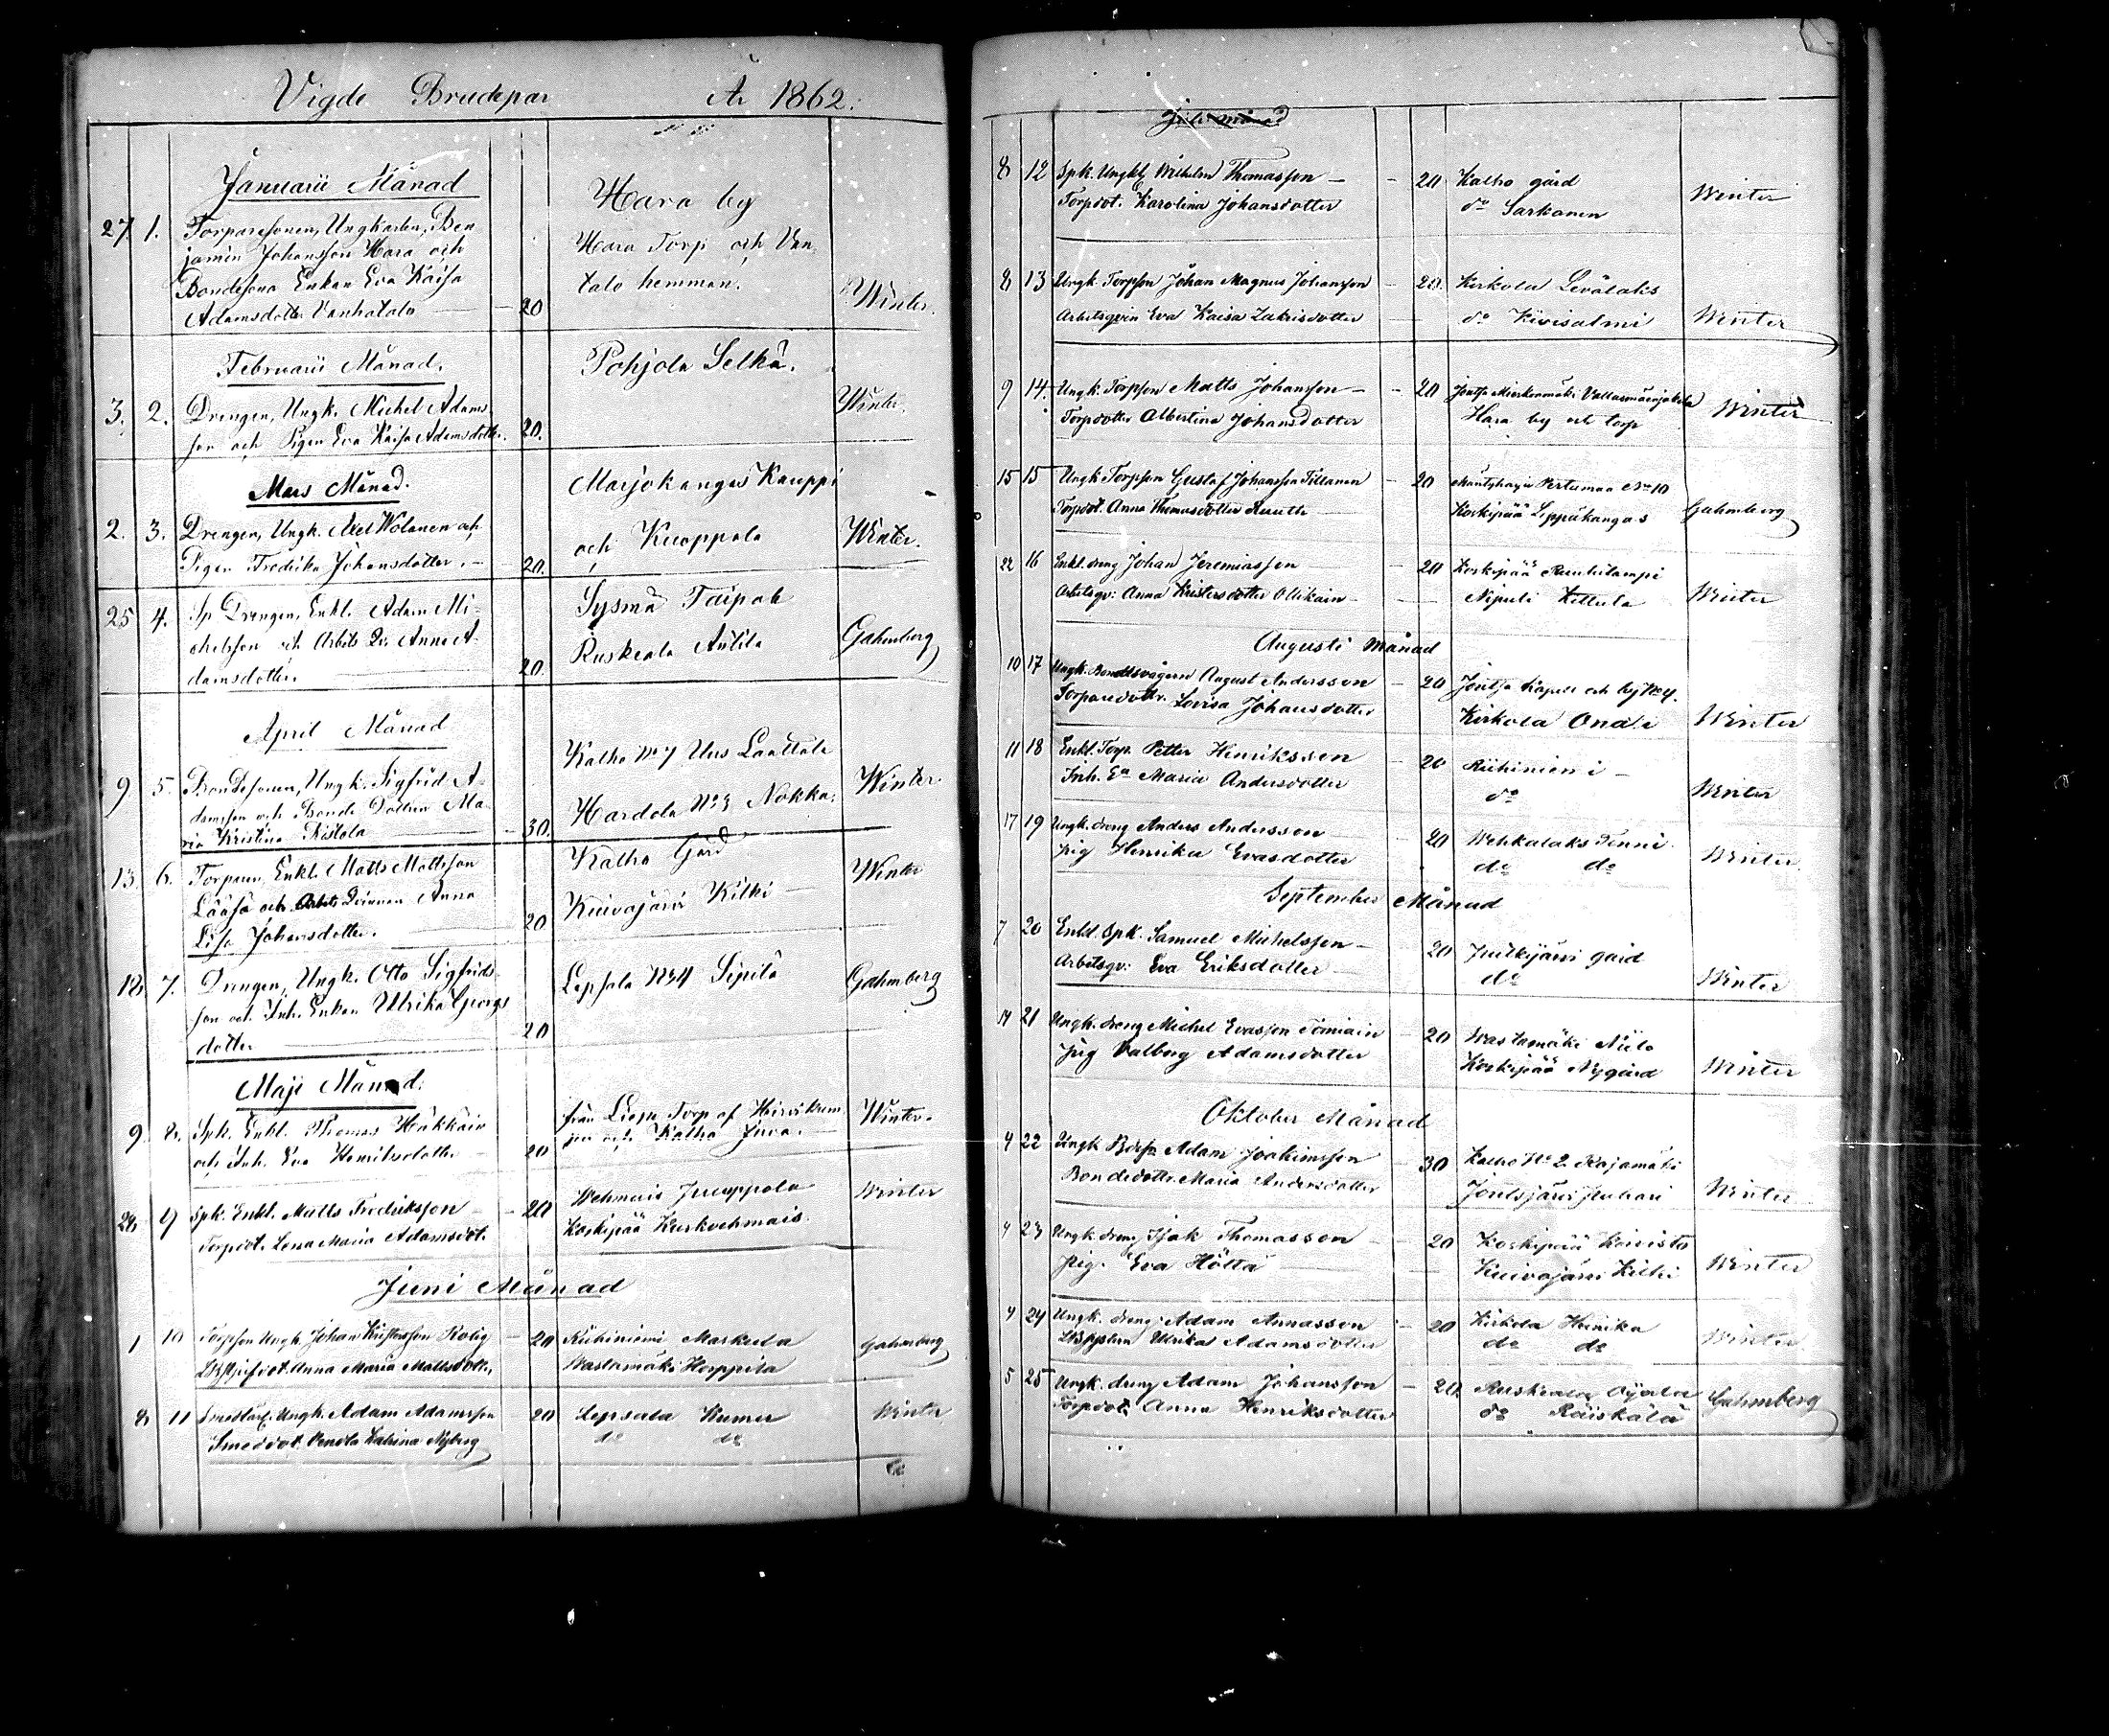 Vigde Brudepar År 1862.
Januarii Månad
27. 1. Torparesonen, Ungkarlen, Ben
jamin Johansson Hara och
Bondesona Enkan Eva Kaisa
Adamsdotter Vanhatalo 20
Hara by
Hara Torp och Van
talo hemman.
Winter.
Februarii Månad.
3. 2. Drengen, Ungk. Michel Adams
son och Pigen Eva Kaisa Adamsdotter. 20.
Pohjola Selkä.
Winter.
Mars Månad.
2. 3. Drengen, Ungk. Axel Wolanen och
Pigen Fredrika Johansdotter. 20.
Marjokangas Kauppi
och Kuoppala
Winter.
25 4. Sp. Drengen, Enkl. Adam Mi-
chelsson och Arbets Qv. Anna A-
damsdotter. 20.
Sysmä Taipale
Ruskeala Anttila
Gahmberg
April Månad
9. 5. Bondesonen, Ungk. Sigfrid A-
damsson och Bonde Dottren Ma-
ria Kristina Ristola 30.
Kalho No 7 Uus Laattala
Hardola No 3 Nokka.
Winter
13. 6. Torparen, Enkl. Matts Mattsson
Lääsä och Arbets Qvinnan Anna
Lisa Johansdotter. 20
Kalho Gård
Kuivajärvi Kilki
Winter
18 7. Drengen, Ungk. Otto Sigfrids
son och Inh. Enkan Ulrika Georgs
dotter 20
Lepsala No 4 Sipilä
Gahmberg
Maji Månad.
9 8. Spk. Enkl. Thomas Häkkäin
och Inh. Eva Henriksdotter 20
från Torp af
och Kalho
Winter.
28 9 Spk. Enkl. Matts Fredriksson 20
Torpdot. Lena Maria Adamsdot.
Wehmais Juuoppola
Koskipää Kurkvehmais.
Winter
Juni Månad
1 10 Torpson Ungk. Johan Kristersson Rolig 20
Anna Maria Mattsdotter
Riihiniemi Markula
Wastamäki Horppila
Gahmberg
8 11 Ungk. Adam Adamsson 20
Smeddot. Vendla Katrina Nyberg
Lepsala Kumu
do do
Winter
Juli månad
8 12 Spk. Ungkl Wilhelm Thomasson 20
Torpdot. Karolina Johansdotter
Kalho gård
do Sarkanen
Winter
8 13 Ungk Torpson Johan Magnus Johansson 20.
Arbetsqvin Eva Kaisa Zakrisdotter
Kirkola Levälaks
do Kivisalmi
Winter
9 14. Ungk. Torpson Matts Johansson 20
Torpdotter Albertina Johansdotter
Joutsa
Hara by och torp
Winter
15 15 Ungk Torpson Gustaf Johansson Tillanen 20
Torpdot. Anna Thomasdotter Ruuth
Mäntyharju Pertumaa No 10
Koskipää Leppäkangas
Gahmberg
22 16 Enkl. dreng Johan Jeremiasson 20
Arbetsqv: Anna Kristersdotter Ollikain
Koskipää Ruuhilampi
Nipuli Kellula
Winter
Augusti månad
10 17 Ungk. Bondesvågern August Andersson 20
Torparedottr. Lovisa Johansdotter
Joutsa Kapell och by No 4.
Kirkola Onali
Winter
11 18 Enkl. Torp. Petter Henriksson 20
Inh. Ea Maria Andersdotter
Riihiniemi
do
Winter
17 19 Ungk. dreng Anders Andersson 20
pig Henrika Evasdotter
Wehkalaks Tenni
do do
Winter
September Månad
7 20 Enkl. Spk. Samuel Michelsson 20
Arbetsqv: Eva Eriksdotter
Putkijärvi gård
do
Winter
14 21 Ungk. dreng Michel Evasson Tömiäin 20
pig Valborg Adamsdotter
Wastamäki Niilo
Koskipää Nygård
Winter
Oktober Månad
4 22 Ungk Bdsn Adam Joakimsson 30
Bondedottr. Maria Andersdotter
Kalho No 2 Rajamäki
Joutsjärvi Juhari
Winter
4 23 Ungk. dreng Isak Thomasson 20
pig. Eva Höltä
Koskipää Koivisto
Kuivajärvi Kilki
Winter
4 24 Ungk. dreng Adam Annasson 20
Ulrika Adamsdotter
Kirkola Heinika
do do
Winter
5 25 Ungk. dreng Adam Johansson 20.
Torpdot. Anna Henriksdotter
Ruskeala Ojala
do Räiskälä
Gahmberg